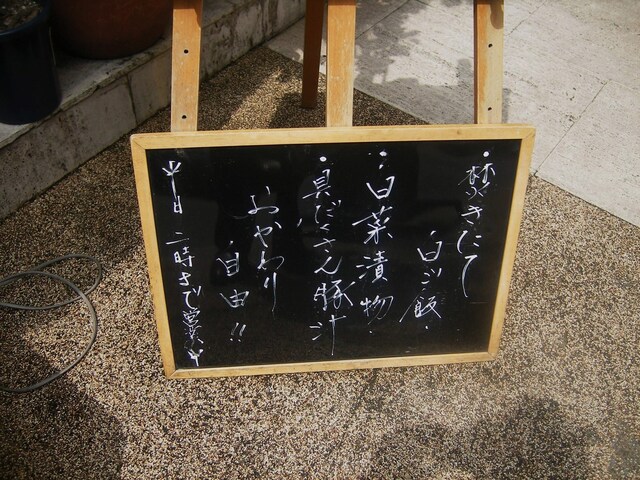 ・焚きたて
白ご飯・
・白菜漬物・
・具だくさん豚汁
おかわり
自由!!
平日 二時まで営業